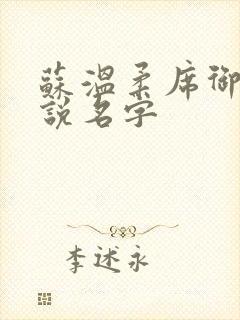 蘇溫柔席御
說名字
李述永